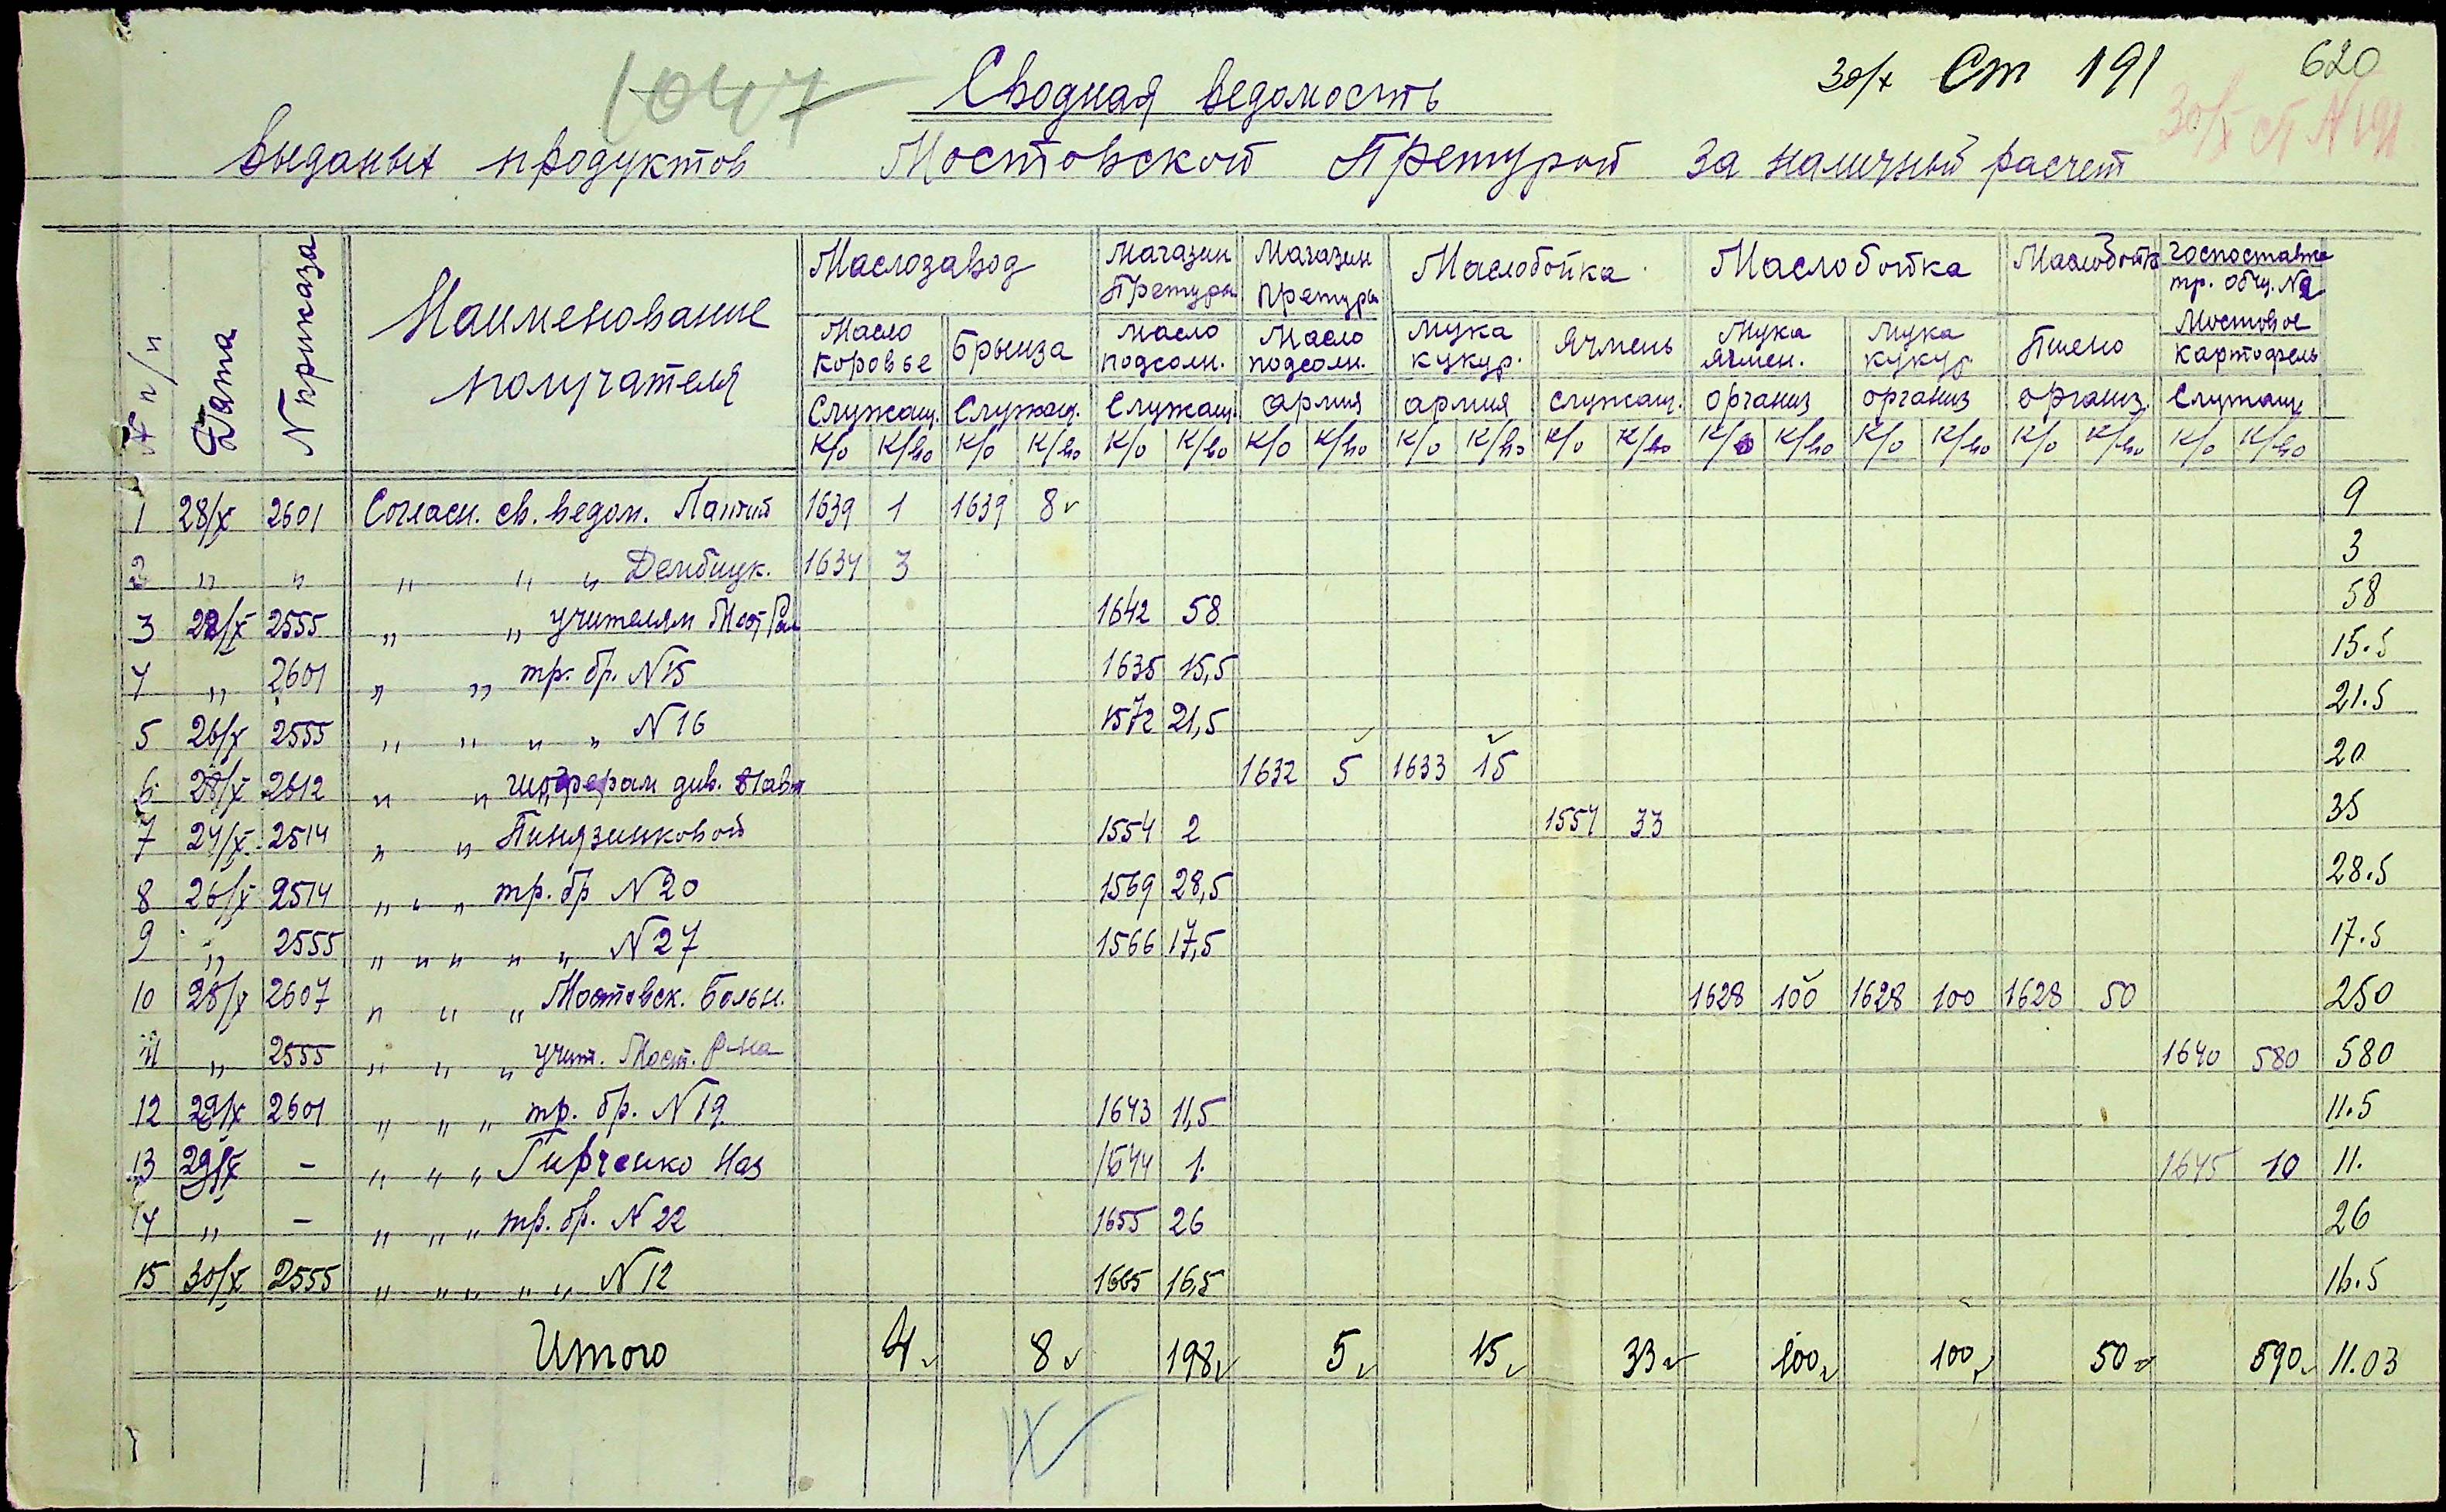 1047
30/X Ст 191
620
Сводная ведомость
30/X ст N 191
выданых продуктов Мостовской Претурой за наличный расчет
N п/п Дата N приказа Наименование получателя Маслозавод Магазин Претуры Магазин претуры Маслобойка Маслобойка Маслобойка Госпоставка тр. общ. N2 Мостовое
Масло коровье Брынза масло подсолн. Масло подсолн. Мука кукур. Ячмень Мука ячмен. Мука кукур. Пшено Картофель
Служащ. Служащ. Служащ. армия армия служащ. организ организ организ. Служащ
к/о к/во к/о к/во к/о к/во к/о к/во к/о к/во к/о к/во к/о к/во к/о к/во к/о к/во к/о к/во
1 28/X 2601 Согласн. св. ведом. 1639 1 1639 8 9
2 " " " " " Дембицк. 1634 3 3
3 22/X 2555 " " учителям 1642 58 58
4 " 2601 " " тр. бр. N15 1635 15,5 15.5
5 26/X 2555 " " " " N16 1572 21,5 21.5
6 28/X 2612 " " див. 1632 5 1633 15 20
7 24/X 2514 " " Пинязинковой 1554 2 1554 33 35
8 26/X 2514 " " " тр. бр N20 1569 28,5 28.5
9 " 2555 " " " " " N27 1566 17,5 17.5
10 28/X 2607 " " " Мостовск. Больн. 1628 100 1628 100 1628 50 250
11 " 2555 " " " учит. Мост. р-на 1640 580 580
12 29/X 2601 " " " тр. бр. N19. 1643 11,5 11.5
13 29/X - " " " Гирченко 1644 1. 1645 10 11.
14 " - " " " тр. бр. N22 1655 26 26
15 30/X 2555 " " " " " N12 1665 16,5 16.5
Итого 4 8 198 5 15 33 100 100 50 590 11.03